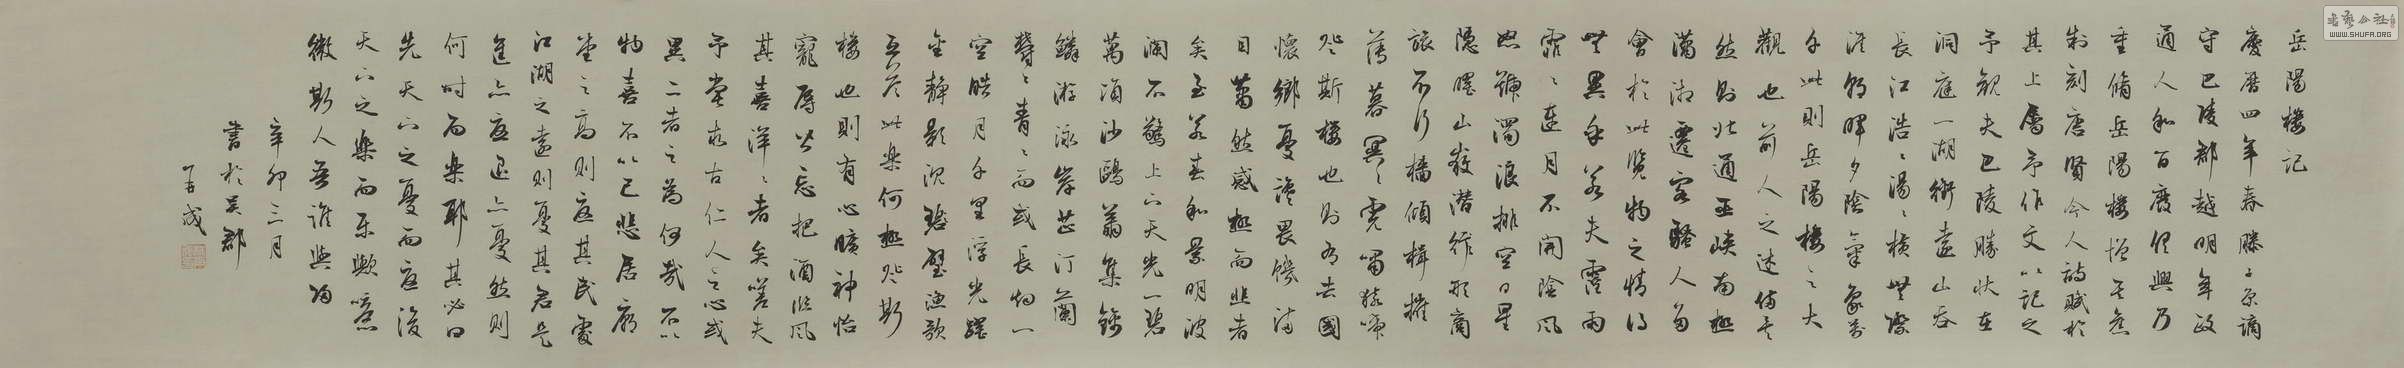 岳陽樓記
慶曆四年春滕子京謫
守巴陵郡越明年政
通人和百廢俱興乃
重脩岳陽樓增其舊
制刻唐賢今人詩賦於
其上屬予作文以記之
予觀夫巴陵勝狀在
洞庭一湖銜遠山吞
長江浩〻湯〻橫無際
涯朝暉夕陰氣象萬
千此則岳陽樓之大
觀也前人之述備矣
然則北通巫峽南極
瀟湘遷客騷人多
會於此覽物之情得
無異乎若夫霪雨
霏〻連月不開陰風
怒號濁浪排空日星
隱曜山嶽潛形商
旅不行檣傾楫摧
薄暮冥〻虎嘯猿啼
登斯樓也則有去國
懷鄉憂讒畏譏滿
目蕭然感極而悲者
矣至若春和景明波
瀾不驚上下天光一碧
萬頃沙鷗翔集錦
鱗游泳岸芷汀蘭
鬱〻青〻而或長烟一
空皓月千里浮光躍
金靜影沉璧漁歌
互答此樂何極登斯
樓也則有心曠神怡
寵辱皆忘把酒臨風
其喜洋〻者矣嗟夫
予嘗求古仁人之心或
異二者之為何哉不以
物喜不以己悲居廟
堂之高則憂其民處
江湖之遠則憂其君是
進亦憂退亦憂然則
何時而樂耶其必曰
先天下之憂而憂後
天下之樂而樂歟噫
微斯人吾誰與歸
辛卯三月
書於吳郡
書藝公社
WWW.SHUFA.ORG